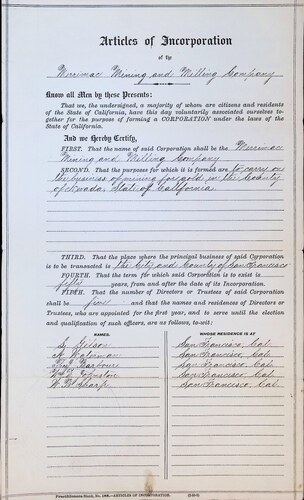 Articles of Incorporation
of the
Merrimac Mining and Milling Company
Know all Men by these Presents:
That we, the undersigned, a majority of whom are citizens and residents
of the State of California, have this day voluntarily associated ourselves to-
gether for the purpose of forming a CORPORATION under the laws of the
State of California.
And we Hereby Certify,
FIRST. That the name of said Corporation shall be the Merrimac
Mining and Milling Company
SECOND. That the purposes for which it is formed are to carry on
the business of mining for gold in the County
of Nevada, State of California.
THIRD. That the place where the principal business of said Corporation
is to be transacted is the City and County of San Francisco
FOURTH. That the term for which said Corporation is to exist is
fifty years, from and after the date of its Incorporation.
FIFTH. That the number of Directors or Trustees of said Corporation
shall be five and that the names and residences of Directors or
Trustees, who are appointed for the first year, and to serve until the election
and qualification of such officers, are as follows, to-wit:
NAMES. WHOSE RESIDENCE IS AT
San Francisco Cal.
San Francisco, Cal.
San Francisco, Cal.
Johnston San Francisco, Cal.
Sharp San Francisco, Cal.
ARTICLES OF INCORPORATION.